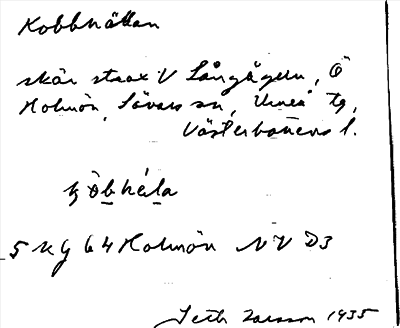 Kobbhällan
skär strax V Långögern, Ö
Holmön, Sävars sn, Umeå tg,
Västerbottens l.
kòbhéla
5 UG 64 Holmön NV D3
Seth Larsson 1935